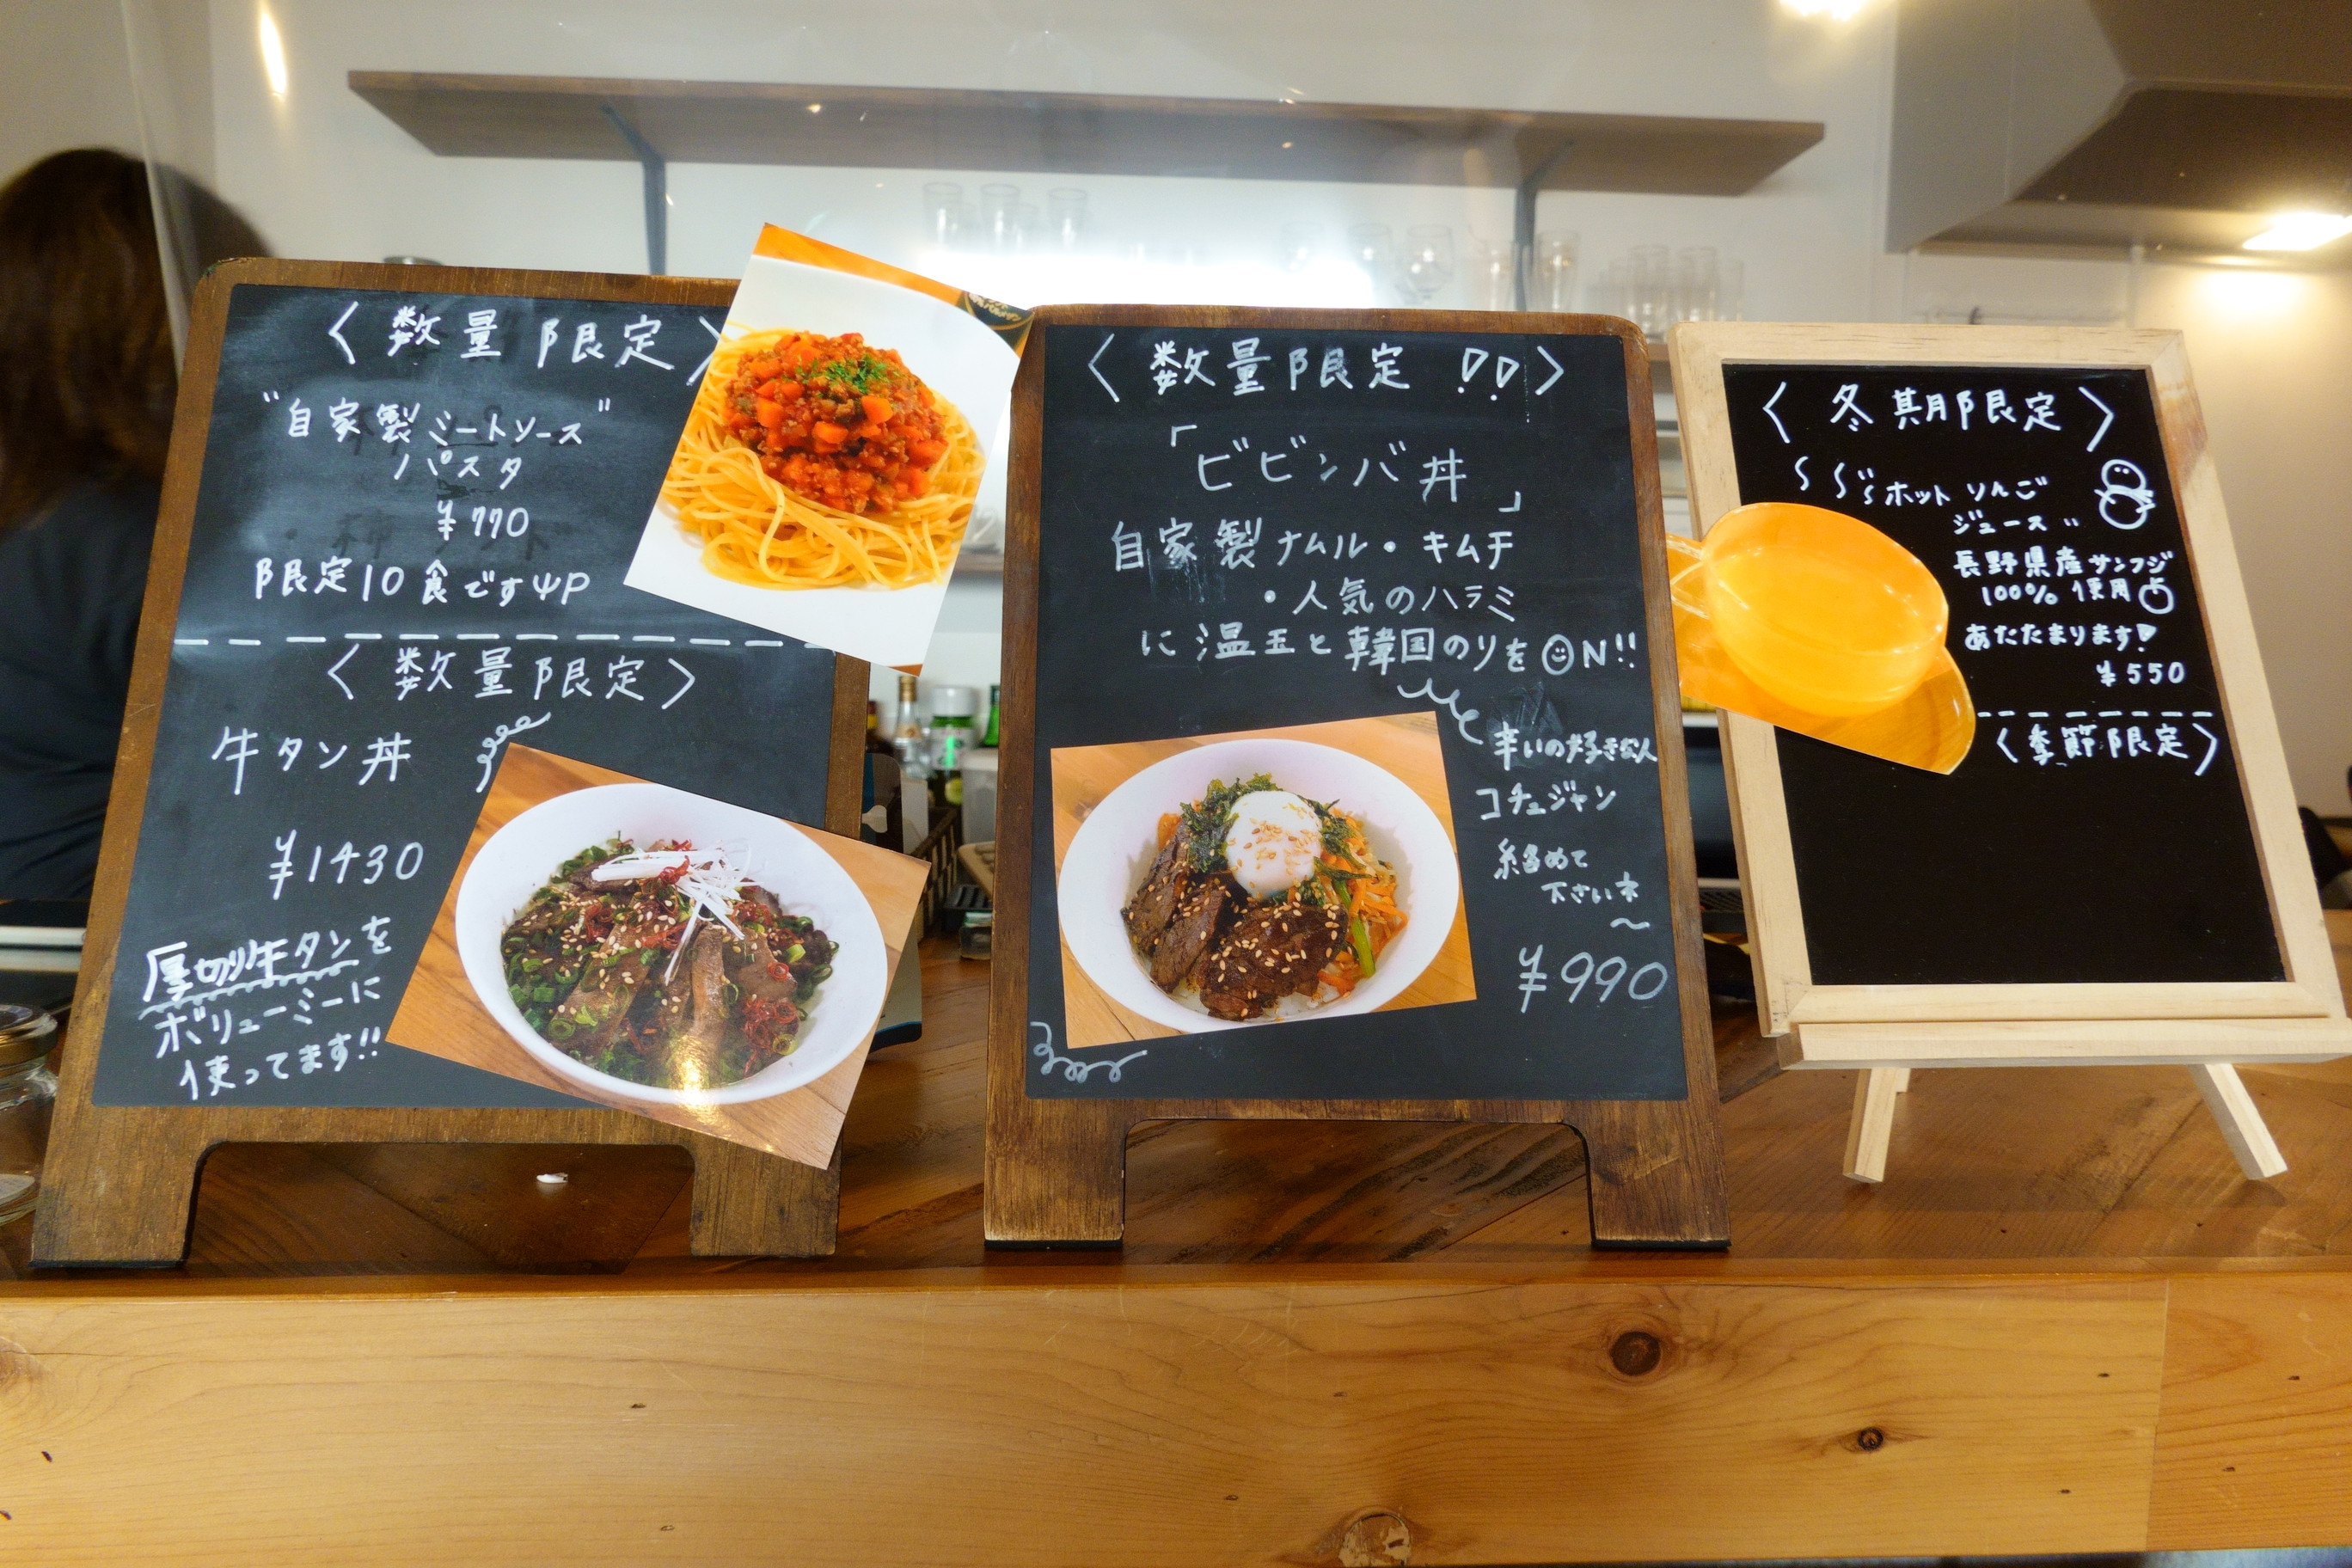 〈数量限定〉
"自家製ミートソース"
パスタ
¥770
限定10食です
〈数量限定〉
牛タン丼
¥1430
厚切り牛タンを
ボリューミーに
使ってます!!
〈数量限定!!〉
「ビビンバ丼」
自家製ナムル・キムチ
・人気のハラミ
に温玉と韓国のりをON!!
辛いの好きな人
コチュジャン
絡めて
下さいネ
〜
¥990
〈冬期限定〉
ホットりんご
ジュース"
長野県産サンフジ
100%使用
あたたまります!
¥550
〈季節限定〉